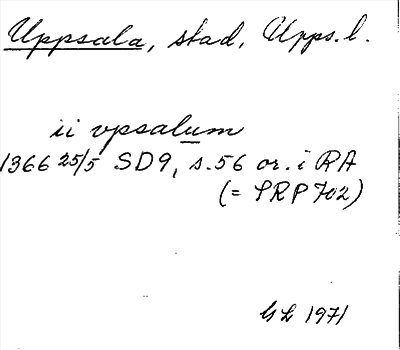 Uppsala, stad, Upps. l.
ii vpsalum
1366 25/5 SD9, s.56 or. i RA
(= SRP 702)
1971